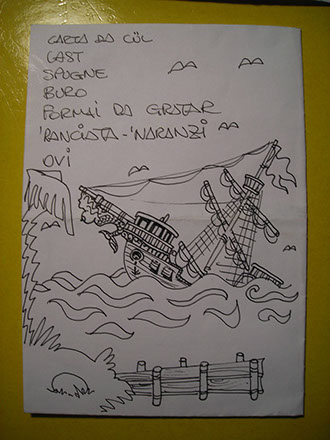 CARTA DA CÜL
LAST
SPUGNE
BURO
FORMAI DA GRATAR
'RANCIATA - 'NARANZI
OVI